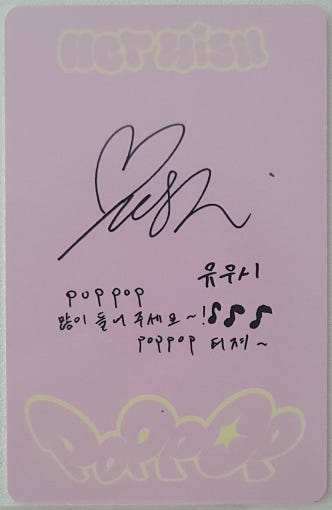 NCT WISH
유우시
POP POP
많이 들어 주세요~!♪♪♪
POPPOP 터져~
POPPOP